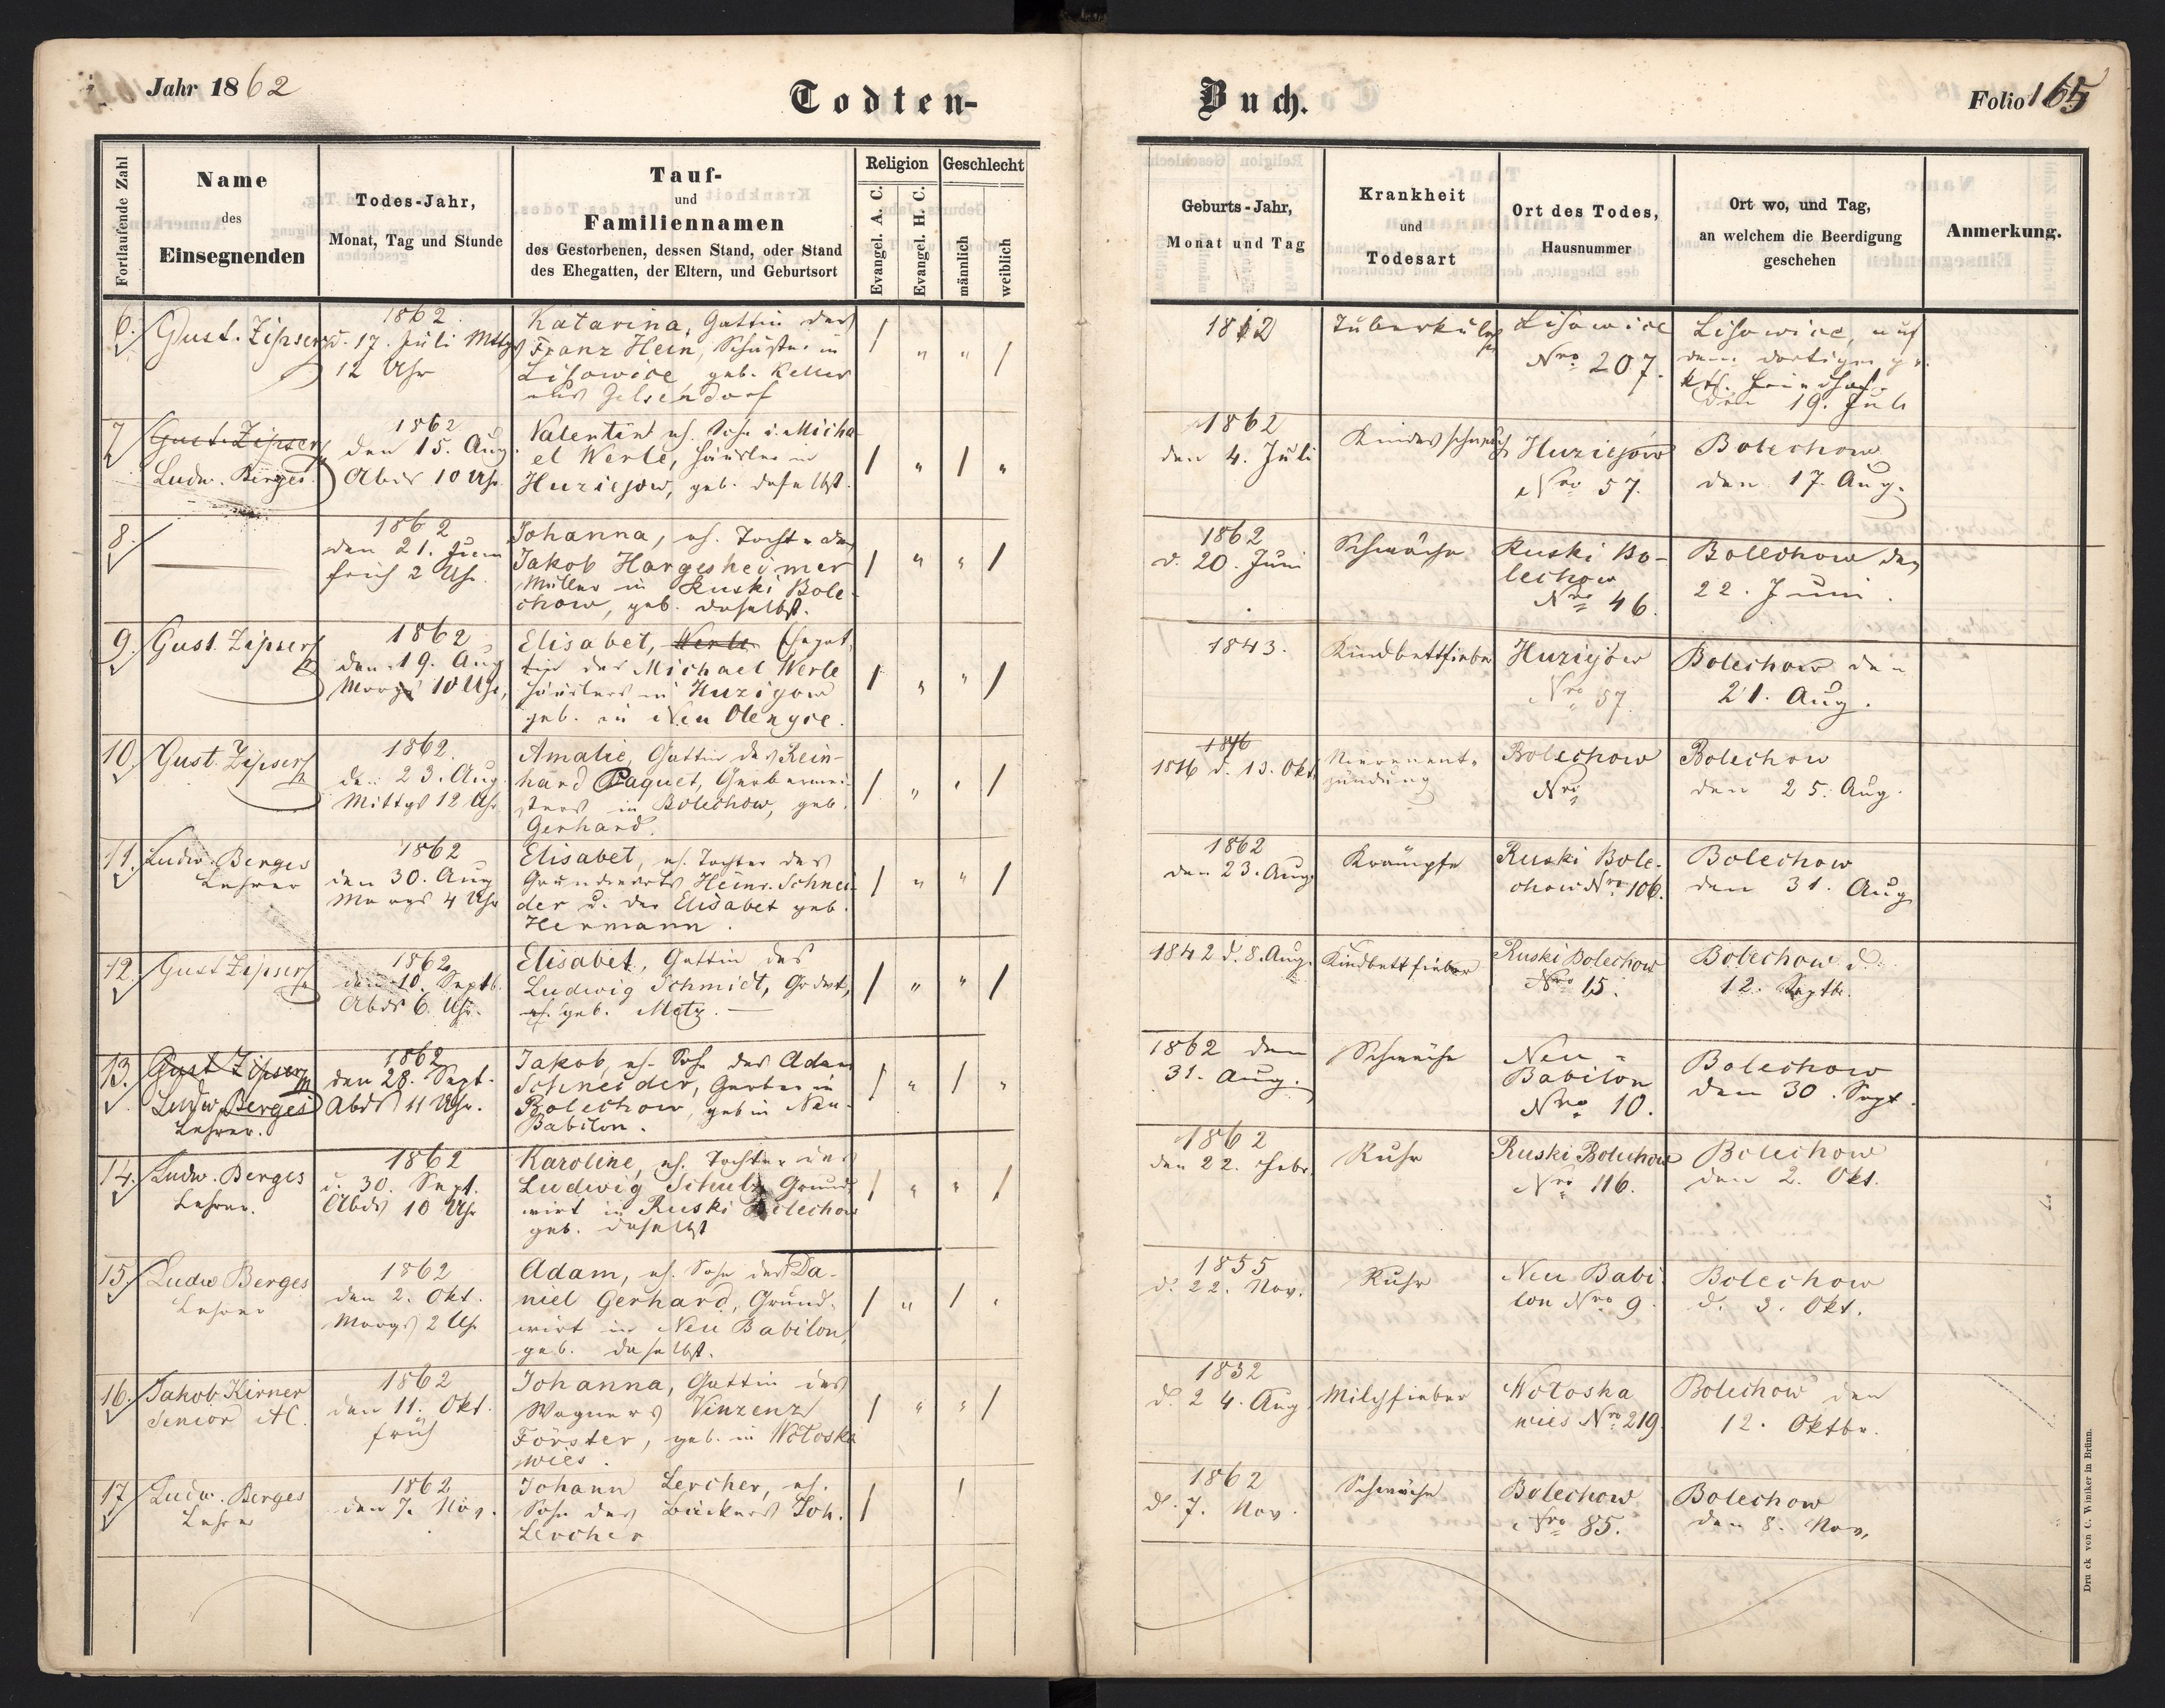 Jahr 1862
Todten-
Buch.
Folio 165
Fortlaufende Zahl
Name
des
Einsegnenden
Todes-Jahr,
Monat, Tag und Stunde
Tauf-
und
Familiennamen
des Gestorbenen, dessen Stand, oder Stand
des Ehegatten, der Eltern, und Geburtsort
Religion
Evangel. A. C.
Evangel. H. C.
Geschlecht
männlich
weiblich
Geburts-Jahr,
Monat und Tag
Krankheit
und
Todesart
Ort des Todes,
Hausnummer
Ort wo, und Tag,
an welchem die Beerdigung
geschehen
Anmerkung.
6.
Gust. Zipser
1862
d. 17. Juli Mttgs
12 Uhr
Katarina, Gattin des
Franz Hein, Schuster in
Lisowice geb. Keller
aus Gelsendorf
/ " " /
1812
Tuberkulos
Lisowice
Nro 207.
Lisowice, auf
dem dortigen
den 19. Juli
7
Gust. Zipser
Ludw. Berges
1862
den 15. Aug.
Abds 10 Uhr
Valentin eh. Sohn d. Micha-
el Werle, Häusler in
Huziejow, geb. daselbst.
/ " / "
1862
den 4. Juli
Huziejow
Nro 57.
Bolechow
den 17. Aug.
8.
1862
den 21. Juni
früh 2 Uhr.
Johanna, eh. Tochter des
Jakob Hargesheimer
Müller in Ruski Bole-
chow, geb. daselbst.
/ " " /
1862
d. 20. Juni
Schwäche
Ruski Bo-
lechow
Nro 46.
Bolechow den
22. Juni.
9.
Gust. Zipser
1862
den 19. Aug
Morgs 10 Uhr,
Elisabet, Werle Ehegat-
tin des Michael Werle
Häuslers in Huzigow
geb. in Neu Olexyce.
/ " " /
1843.
Kindbettfieber
Huziejów
Nro 57.
Bolechow den
21. Aug.
10.
Gust. Zipser
1862.
den 23. Aug.
Mittgs 12 Uhr
Amalie, Gattin des Rein-
hard Paquet, Gerbermei-
sters in Bolechow, geb.
Gerhard.
/ " " /
1816
1816 d. 13. Okt.
Nierenent-
zündung
Bolechow
Nro
Bolechow
den 25. Aug.
11.
Ludw. Berges
Lehrer
1862
den 30. Aug
Morgs 4 Uhr
Elisabet, eh. Tochter des
Grundwirts Heinr. Schnei-
der u. der Elisabet geb.
Hermann.
/ " " /
1862
den 23. Aug.
Krämpfe
Ruski Bole-
chow Nro 106.
Bolechow
den 31. Aug
12.
Gust Zipser
1862
den 10. Septb.
Abds 6. Uhr.
Elisabet, Gattin des
Ludwig Schmidt, Grdwt,
eh. geb. Metz. —
/ " " /
1842 d. 8. Aug.
Kindbettfieber
Ruski Bolechow
Nro 15.
Bolechow d.
12. Septbr.
13.
Gust Zipser
Ludw Berges
Lehrer.
1862
den 28. Sept.
Abds 11 Uhr.
Jakob, eh. Sohn des Adam
Schneider, Gerber in
Bolechow, geb in Neu-
Babilon.
/ " / "
1862 den
31. Aug.
Schwäche
Neu-
Babilon
Nro 10.
Bolechow
den 30. Sept.
14.
Ludw. Berges
Lehrer.
1862
d. 30. Sept.
Abds 10 Uhr
Karoline, eh. Tochter des
Ludwig Schulz Grund-
wirt in Ruski Bolechow
geb. daselbst
/ " " /
1862
den 22. Febr.
Ruhr
Ruski Bolechow
Nro 116.
Bolechow
den 2. Okt.
15.
Ludw Berges
Lehrer
1862
den 2. Okt.
Morgs 2 Uhr
Adam, eh. Sohn des Da-
niel Gerhard, Grund-
wirt in Neu Babilon,
geb. daselbst.
/ " / "
1855
d. 22. Nov.
Ruhr
Neu Babi-
lon Nro 9.
Bolechow
d. 3. Okt.
16.
Jakob Kirner
Senior AC.
1862
den 11. Okt.
früh
Johanna, Gattin des
Wagners Vinzenz
Förster, geb. in Wołoska
wies.
/ " " /
1832
d. 24. Aug
Milchfieber
Wołoska
wies Nro 219.
Bolechow den
12. Oktbr.
17
Ludw. Berges
Lehrer
1862
den 7. Nov.
Johann Lercher, eh.
Sohn des Bäckers Joh.
Lercher
/ /
1862
d. 7. Nov.
Schwäche
Bolechow
Nro 85.
Bolechow
den 8. Nov.
Druck von C. Winiker in Brünn.